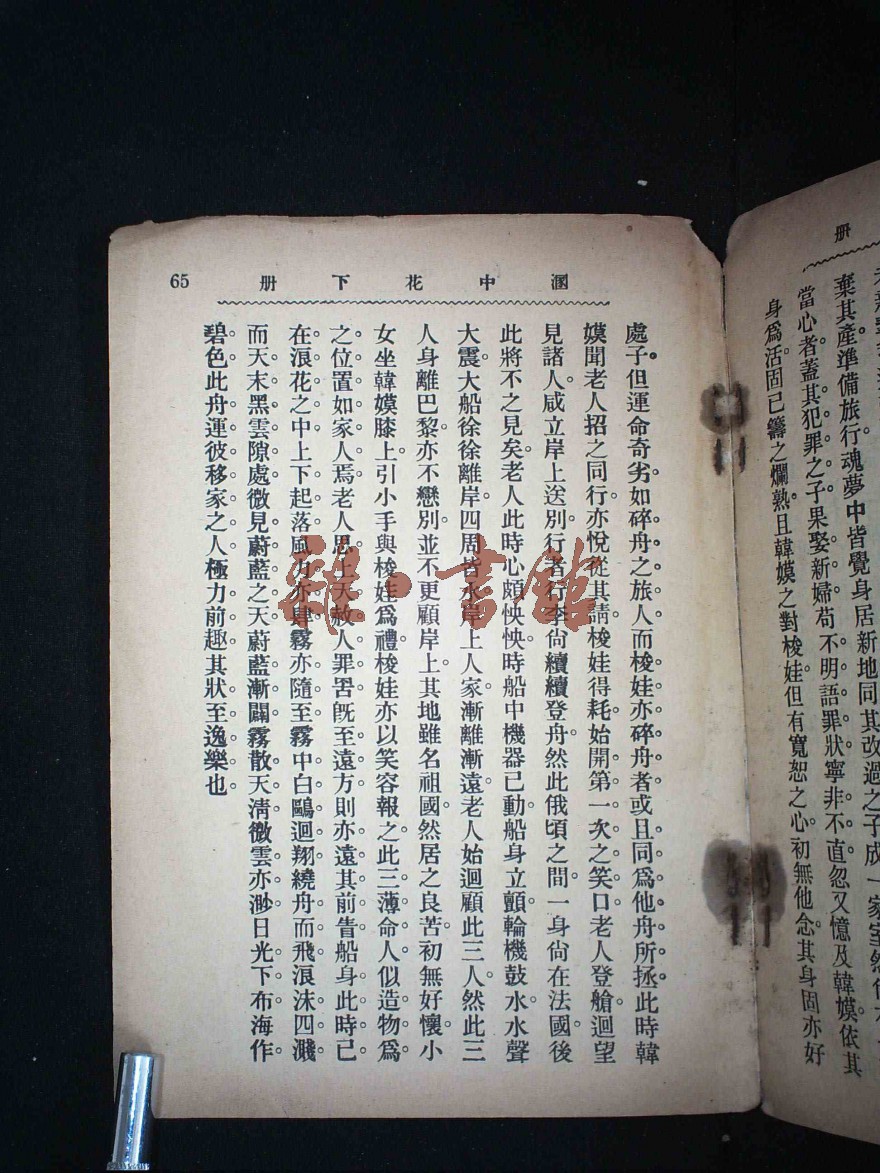 身爲活固已籌之爛熟。且韓媖之對梭娃。但有寬恕之心。初無他念。其身固亦好
當心者。蓋其犯罪之子。果娶新婦。苟不明語罪狀。寧非不直。忽又憶及韓媖。依其
棄其產。準備旅行。魂夢中皆覺身居新地。同其改過之子。成一家室。
册
溷中花下册
65
處子。但運命奇劣。如碎舟之旅人。而梭娃亦碎舟者。或且同爲他舟所拯。此時韓
媖聞老人招之同行。亦悅從其請。梭娃得耗。始開第一次之笑口。老人登艙迴望
見諸人。咸立岸上送別。行者行李尙續續登舟。然此俄頃之間。一身尙在法國。後
此將不之見矣。老人此時心頗怏怏。時船中機器已動。船身立顫。輪機鼓水。水聲
大震。大船徐徐離岸。四周皆水。岸上人家漸離漸遠。老人始迴顧此三人。然此三
人身離巴黎。亦不戀別。並不更顧岸上。其地雖名祖國。然居之良苦。初無好懷。小
女坐韓媖膝上。引小手與梭娃爲禮。梭娃亦以笑容報之。此三薄命人。似造物爲
之位置如家人焉。老人思上天赦人罪罟。旣至遠方。則亦遠其前眚。船身此時已
在浪花之中。上下起落。風力亦肆。霧亦隨至。霧中白鷗迴翔。繞舟而飛。浪沫四濺。
而天末黑雲隙處。微見蔚藍之天。蔚藍漸闢。霧散天淸。微雲亦渺。日光下布。海作
碧色。此舟運彼移家之人。極力前趣。其狀至逸樂也。